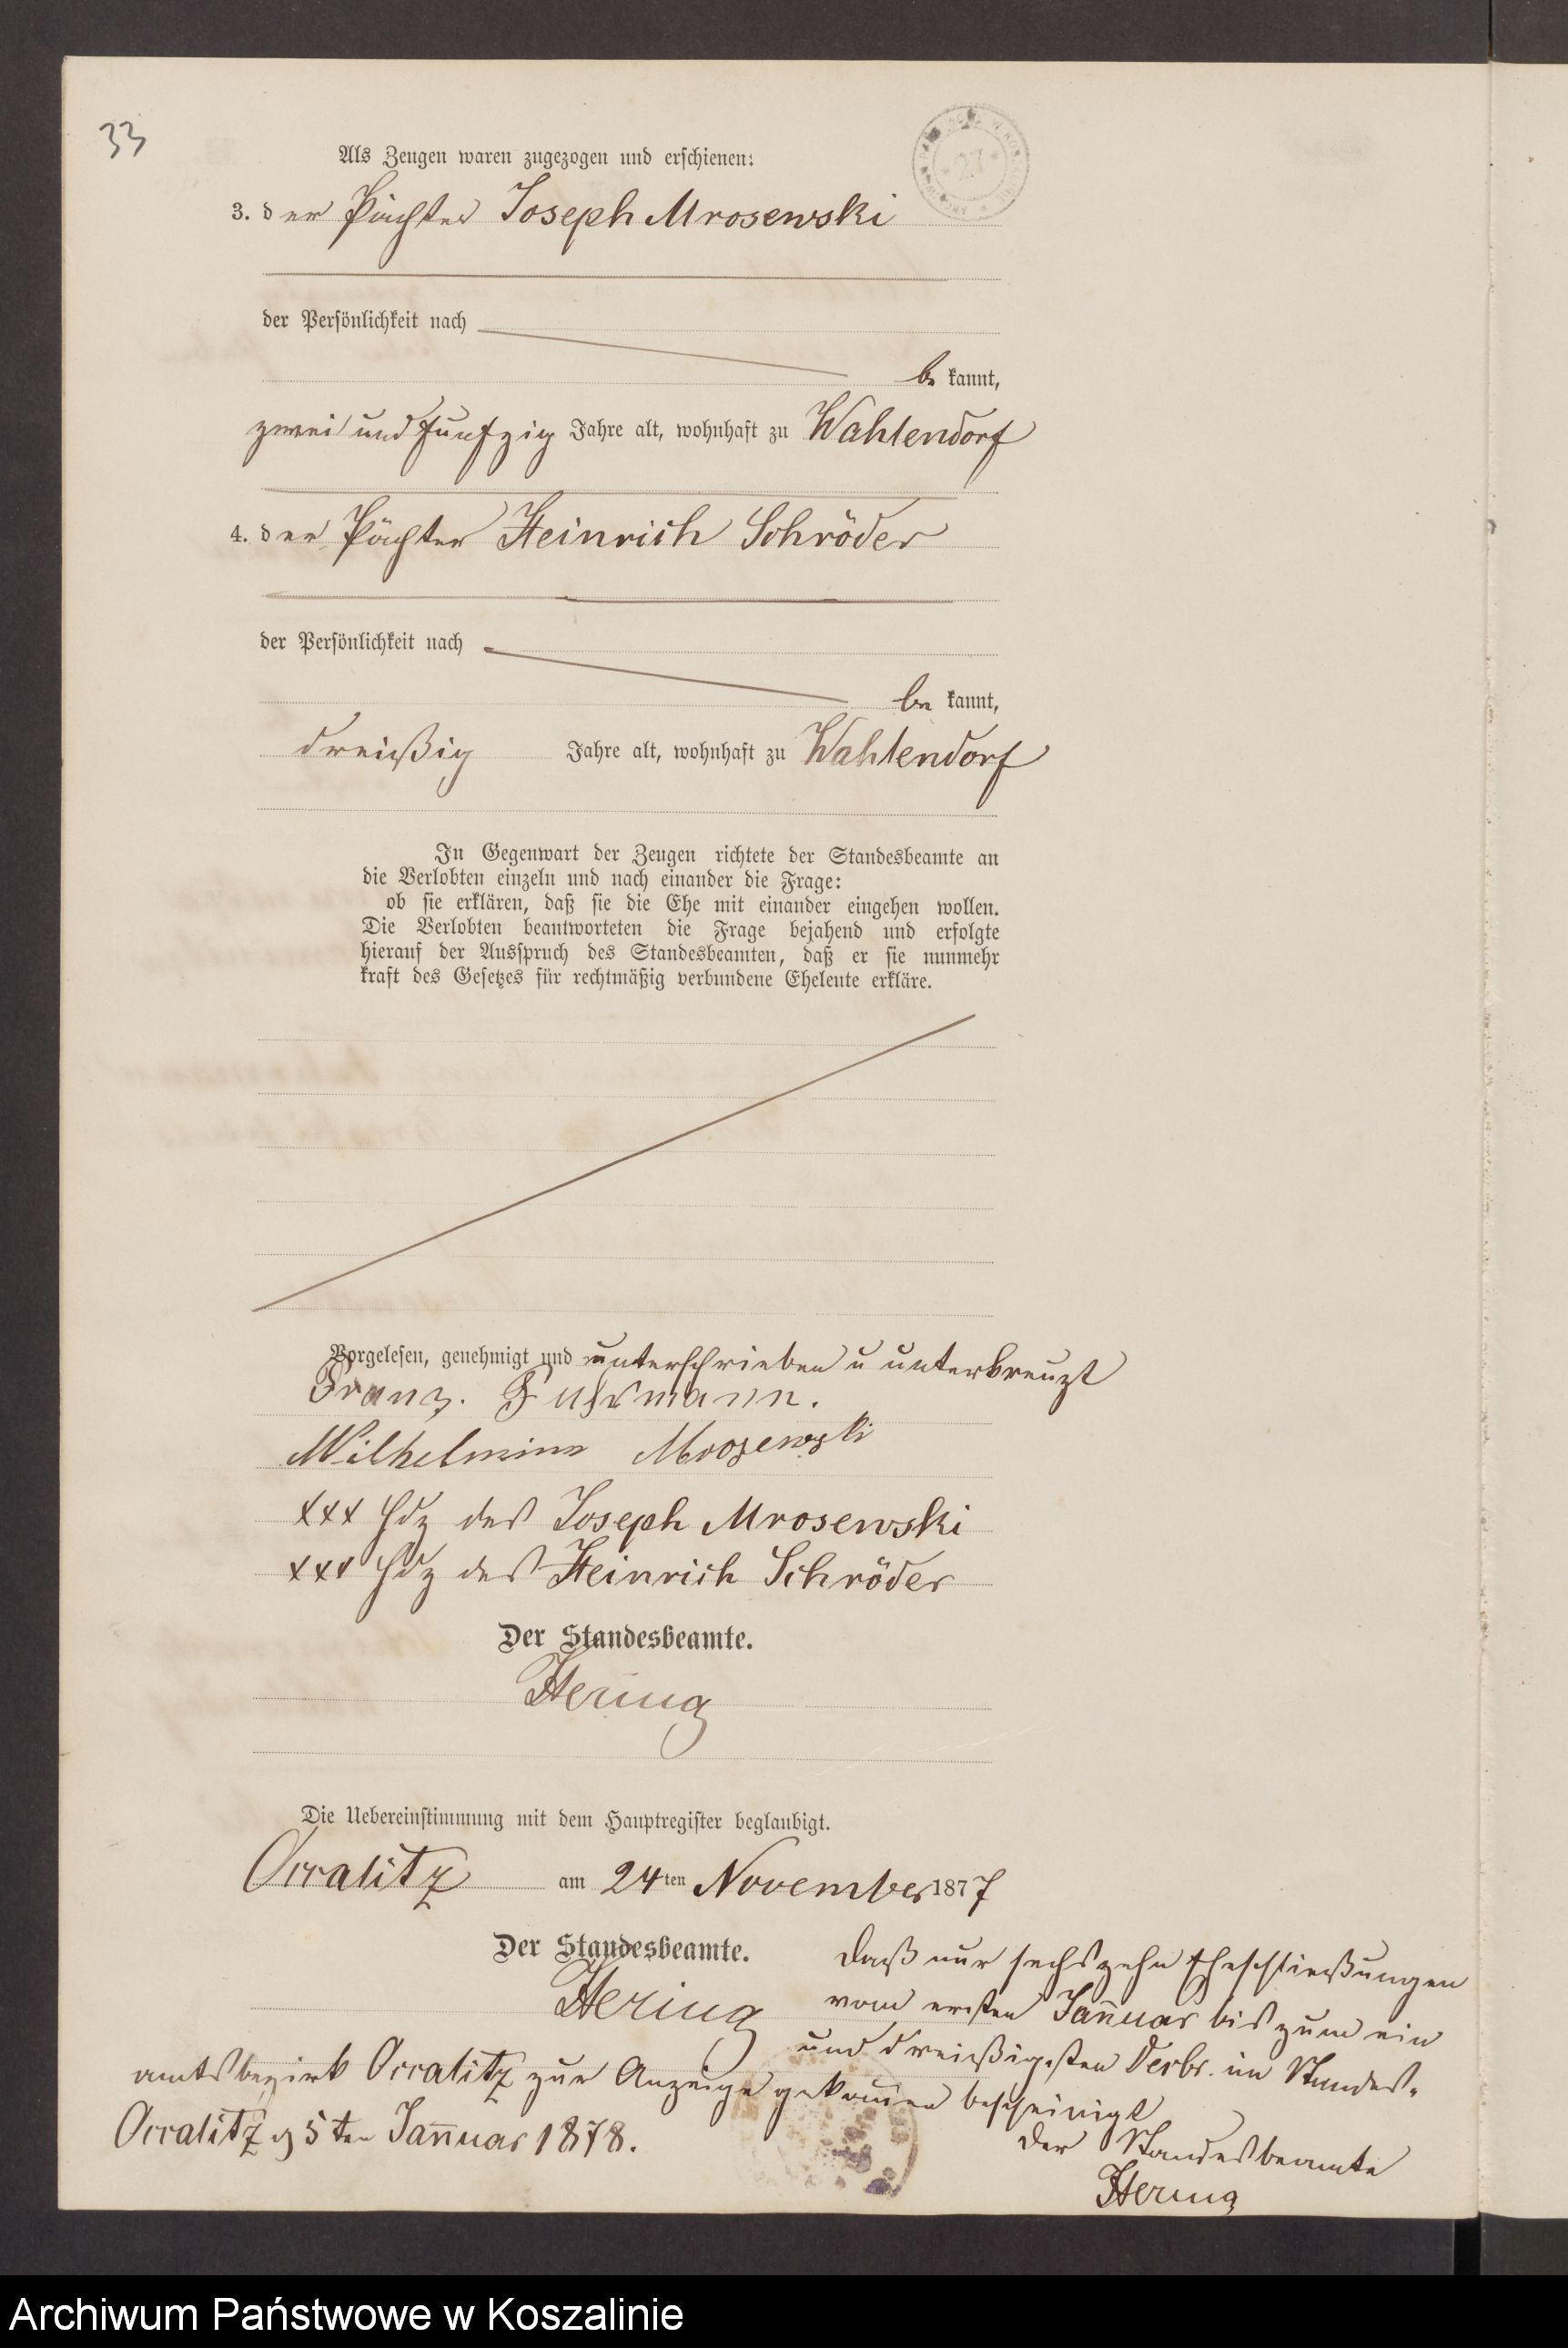 33
27
Als Zeugen waren zugezogen und erschienen:
3. der Pächter Joseph Mrosewski
der Persönlichkeit nach
bekannt,
zwei und funfzig Jahre alt, wohnhaft zu Wahlendorf
4. der Pächter Heinrich Schröder
der Persönlichkeit nach
bekannt,
dreißig Jahre alt, wohnhaft zu Wahlendorf
In Gegenwart der Zeugen richtete der Standesbeamte an
die Verlobten einzeln und nach einander die Frage:
ob sie erklären, daß sie die Ehe mit einander eingehen wollen.
Die Verlobten beantworteten die Frage bejahend und erfolgte
hierauf der Ausspruch des Standesbeamten, daß er sie nunmehr
kraft des Gesetzes für rechtmäßig verbundene Eheleute erkläre.
Vorgelesen, genehmigt und unterschrieben u unterkreuzt
Franz. Fuhrmann.
Wilhelmine Mrosewski
xxx Hdz des Joseph Mrosewski
xxx Hdz des Heinrich Schröder
Der Standesbeamte.
Hering
Die Uebereinstimmung mit dem Hauptregister beglaubigt.
Occalitz am 24ten November 1877
Der Standesbeamte.
Hering
Daß nur sechszehn Eheschließungen
vom ersten Januar bis zum ein
und dreißigsten Decbr. im Standes-
amtsbezirk Occalitz zur Anzeige gekommen bescheinigt
Occalitz 5ten Januar 1878.
Der Standesbeamte
Hering
Archiwum Państwowe w Koszalinie